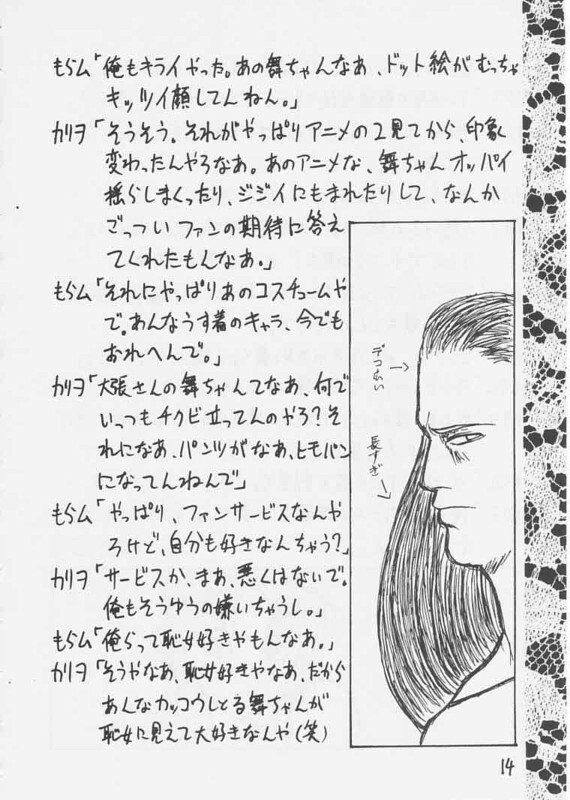 もらム「俺もキライやった。あの舞ちゃんなあ、ドット絵がむっちゃ
キッツイ顔してんねん。」
カリヲ「そうそう。それがやっぱりアニメの2見てから、印象
変わったんやろなあ。あのアニメな、舞ちゃんオッパイ
揺らしまくったり、ジジイにもまれたりして、なんか
ごっつい ファンの期待に答え
てくれたもんなあ。」
もらム「それにやっぱりあのコスチュームや
で。あんなうす着のキャラ、今でも
おれへんで。」
カリヲ「大張さんの舞ちゃんてなあ、何で
いっつもチクビ立ってんのやろ?そ
れになあ、パンツがなあ、ヒモパン
になってんねんで」
もらム「やっぱり、ファンサービスなんや
ろけど、自分も好きなんちゃう?」
カリヲ「サービスか、まあ、悪くはないで。
俺もそうゆうの嫌いちゃうし。」
もらム「俺らって恥女好きやもんなあ。」
カリヲ「そうやなあ、恥女好きやなあ、だから
あんなカッコウしとる舞ちゃんが
恥女に見えて大好きなんや(笑)
デコひろい
長すぎ
14